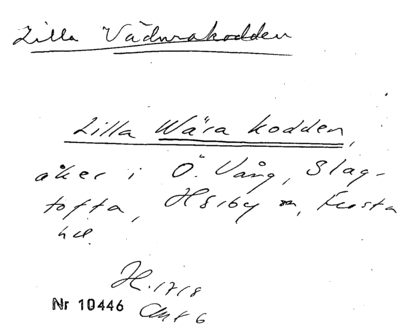 Lilla Vädurakodden
Lilla Wära kodden,
åker i Ö. Vång, Slag-
tofta, Hörby sn, Frosta
hd.
H. 1718
Nr 10446